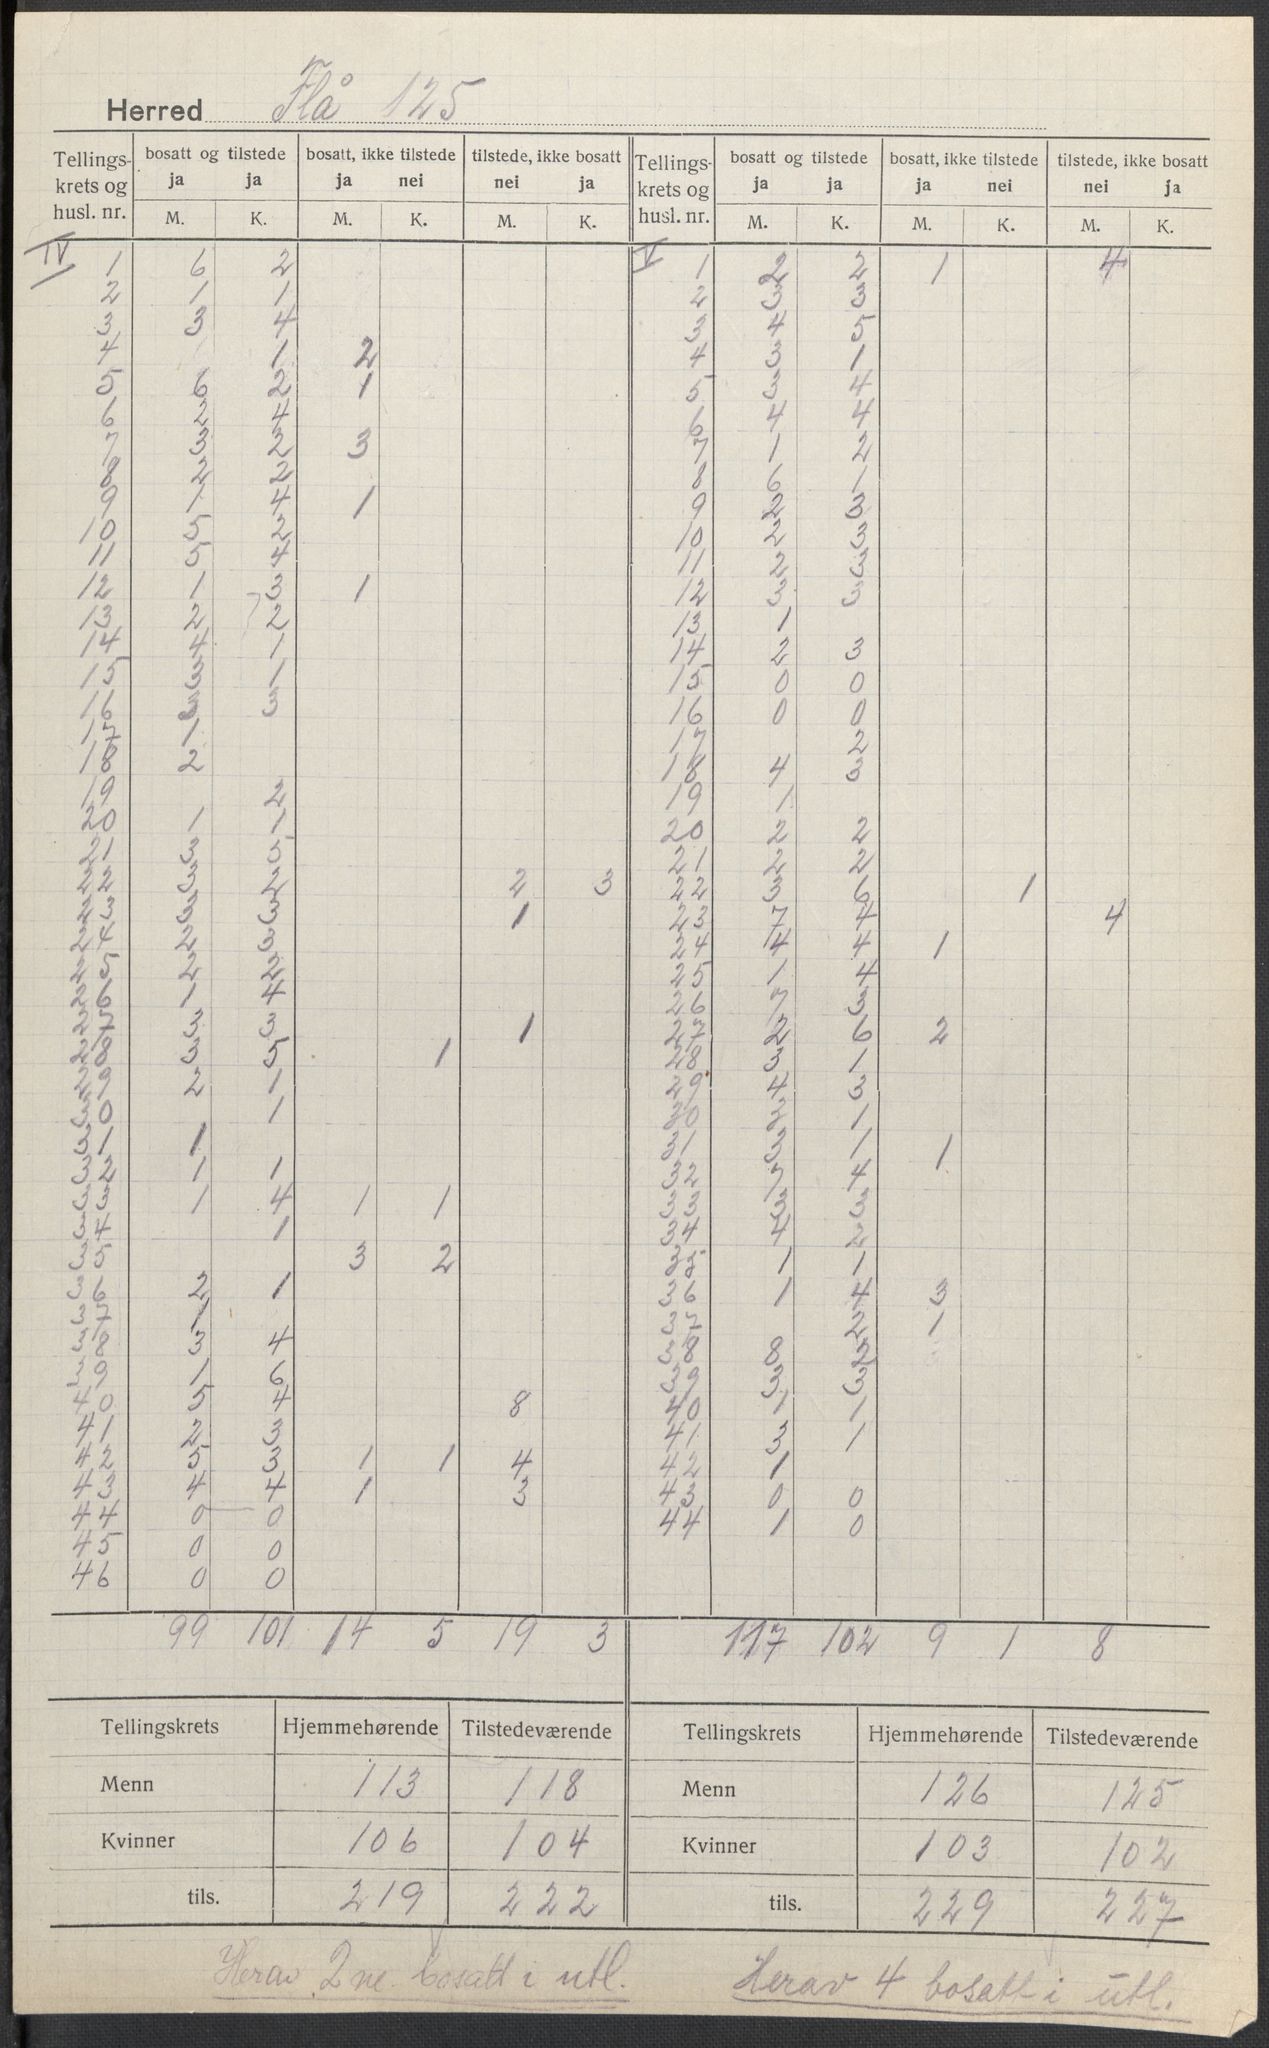 Herred Flå 125
Tellings-krets og husl. nr. | bosatt og tilstede ja ja | bosatt, ikke tilstede ja nei | tilstede, ikke bosatt nei ja | Tellings-krets og husl. nr. | bosatt og tilstede ja ja | bosatt, ikke tilstede ja nei | tilstede, ikke bosatt nei ja
M. K. M. K. M. K. M. K. M. K. M. K.
IV
1 6 2
2 1 1
3 3 4
4 1 2
5 6 2 1
6 2 4
7 3 2 3
8 2 2
9 1 4 1
10 5 2
11 5 4
12 1 3 1
13 2 2
14 4 1
15 3 1
16 3
17 1
18 2
19 2
20 1 1
21 3 5
22 3 2 2 3
23 3 3 1
24 2 3
25 2 2
26 1 4
27 3 3 1
28 3 5 1
29 2 1
30 1
31 1
32 1 1
33 1 4 1 1
34 1
35 3 2
36 2 1
37 1
38 3 4
39 1 6
40 5 4 8
41 2 3
42 5 3 1 1 4
43 4 4 1 3
44 0 0
45 0 0
46 0 0
99 101 14 5 19 3
V
1 2 2 1 4
2 3 3
3 4 5
4 3 1
5 3 4
6 4 4
7 1 2
8 6 1
9 2 3
10 2 3
11 2 3
12 3 3
13 1
14 2 3
15 0 0
16 0 0
17 2
18 4 3
19 1
20 2 2
21 2 2
22 3 6 1
23 7 4 4
24 4 4 1
25 1 4
26 7 3
27 2 6 2
28 3 1
29 4 3
30 1
31 3 1 1
32 4
33 3 3
34 4 2
35 1 1
36 1 4 3
37 2 1
38 8
39 3 3
40 1 1
41 3 1
42 1
43 0 0
44 1 0
117 102 9 1 8
Tellingskrets Hjemmehørende Tilstedeværende Tellingskrets Hjemmehørende Tilstedeværende
Menn 113 118 Menn 126 125
Kvinner 106 104 Kvinner 103 102
tils. 219 222 tils. 229 227
Herav 2 ne. bosatt i utl. Herav 4 bosatt i utl.